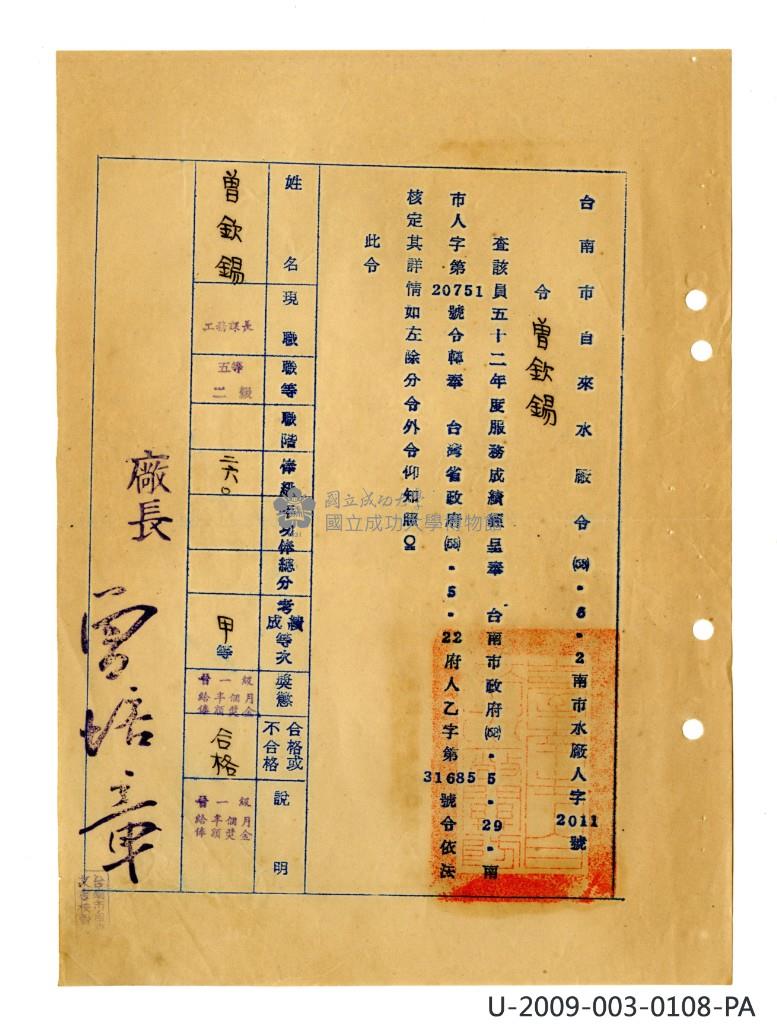 台南市自來水廠令(53).6.2南市水廠人字2011號
令 曾欽錫
查該員五十二年度服務成績經呈奉 台南市政府(53).5.29.南
市人字第20751號令轉奉 台灣省政府(53).5.22府人乙字第31685號令依法
核定其詳情如左除分令外令仰知照。
此令
姓名
現職
職等
職階
俸級
年功俸
總分
考成績等次
獎懲
合格或
不合格
說明
曾欽錫
工務課長
五等
二級
二六〇
甲等
晉一級
給半個月
俸額獎金
合格
晉一級
給半個月
俸額獎金
廠長 曾培章
國立成功大學
國立成功大學博物館
U-2009-003-0108-PA